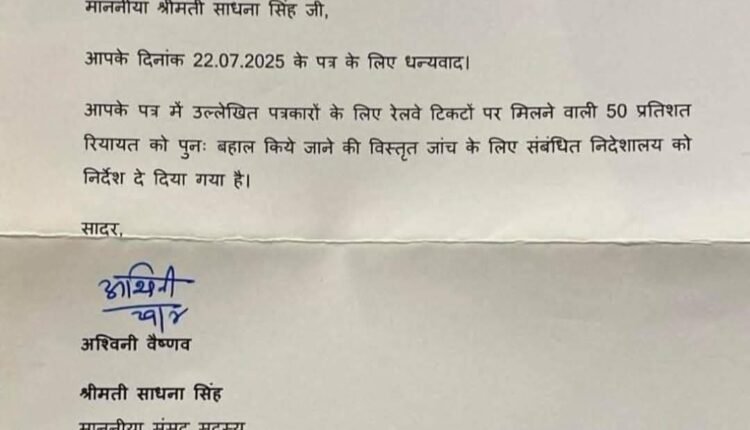 माननीया श्रीमती साधना सिंह जी,
आपके दिनांक 22.07.2025 के पत्र के लिए धन्यवाद।
आपके पत्र में उल्लेखित पत्रकारों के लिए रेलवे टिकटों पर मिलने वाली 50 प्रतिशत
रियायत को पुनः बहाल किये जाने की विस्तृत जांच के लिए संबंधित निदेशालय को
निर्देश दे दिया गया है।
सादर,
अश्विनी वैष्णव
श्रीमती साधना सिंह
माननीया संसद सदस्य